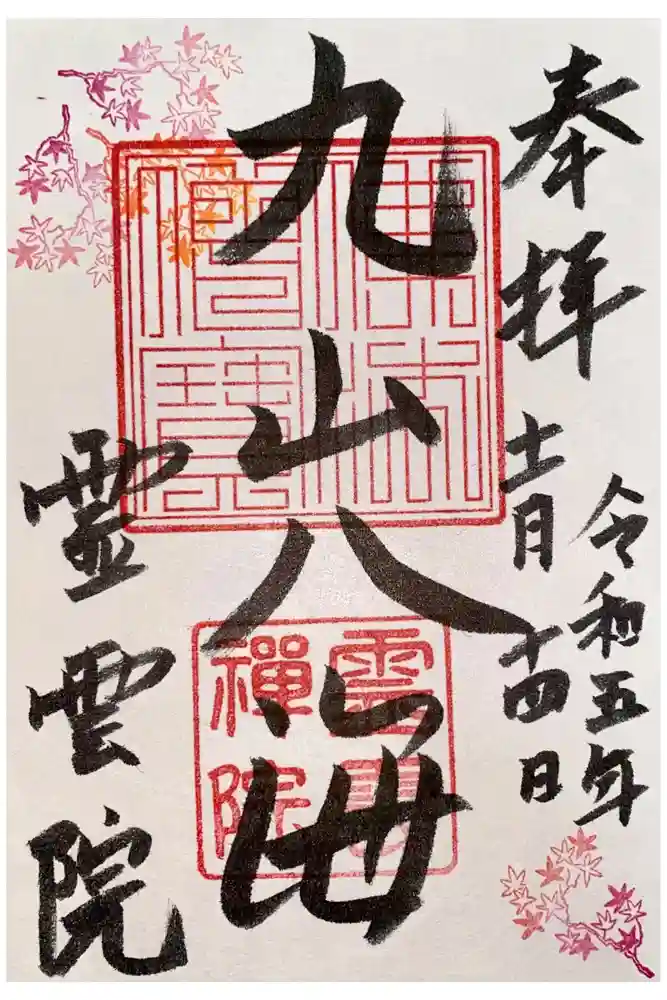 奉拝
令和五年
十一月十四日
九山八海
霊雲院
禪院